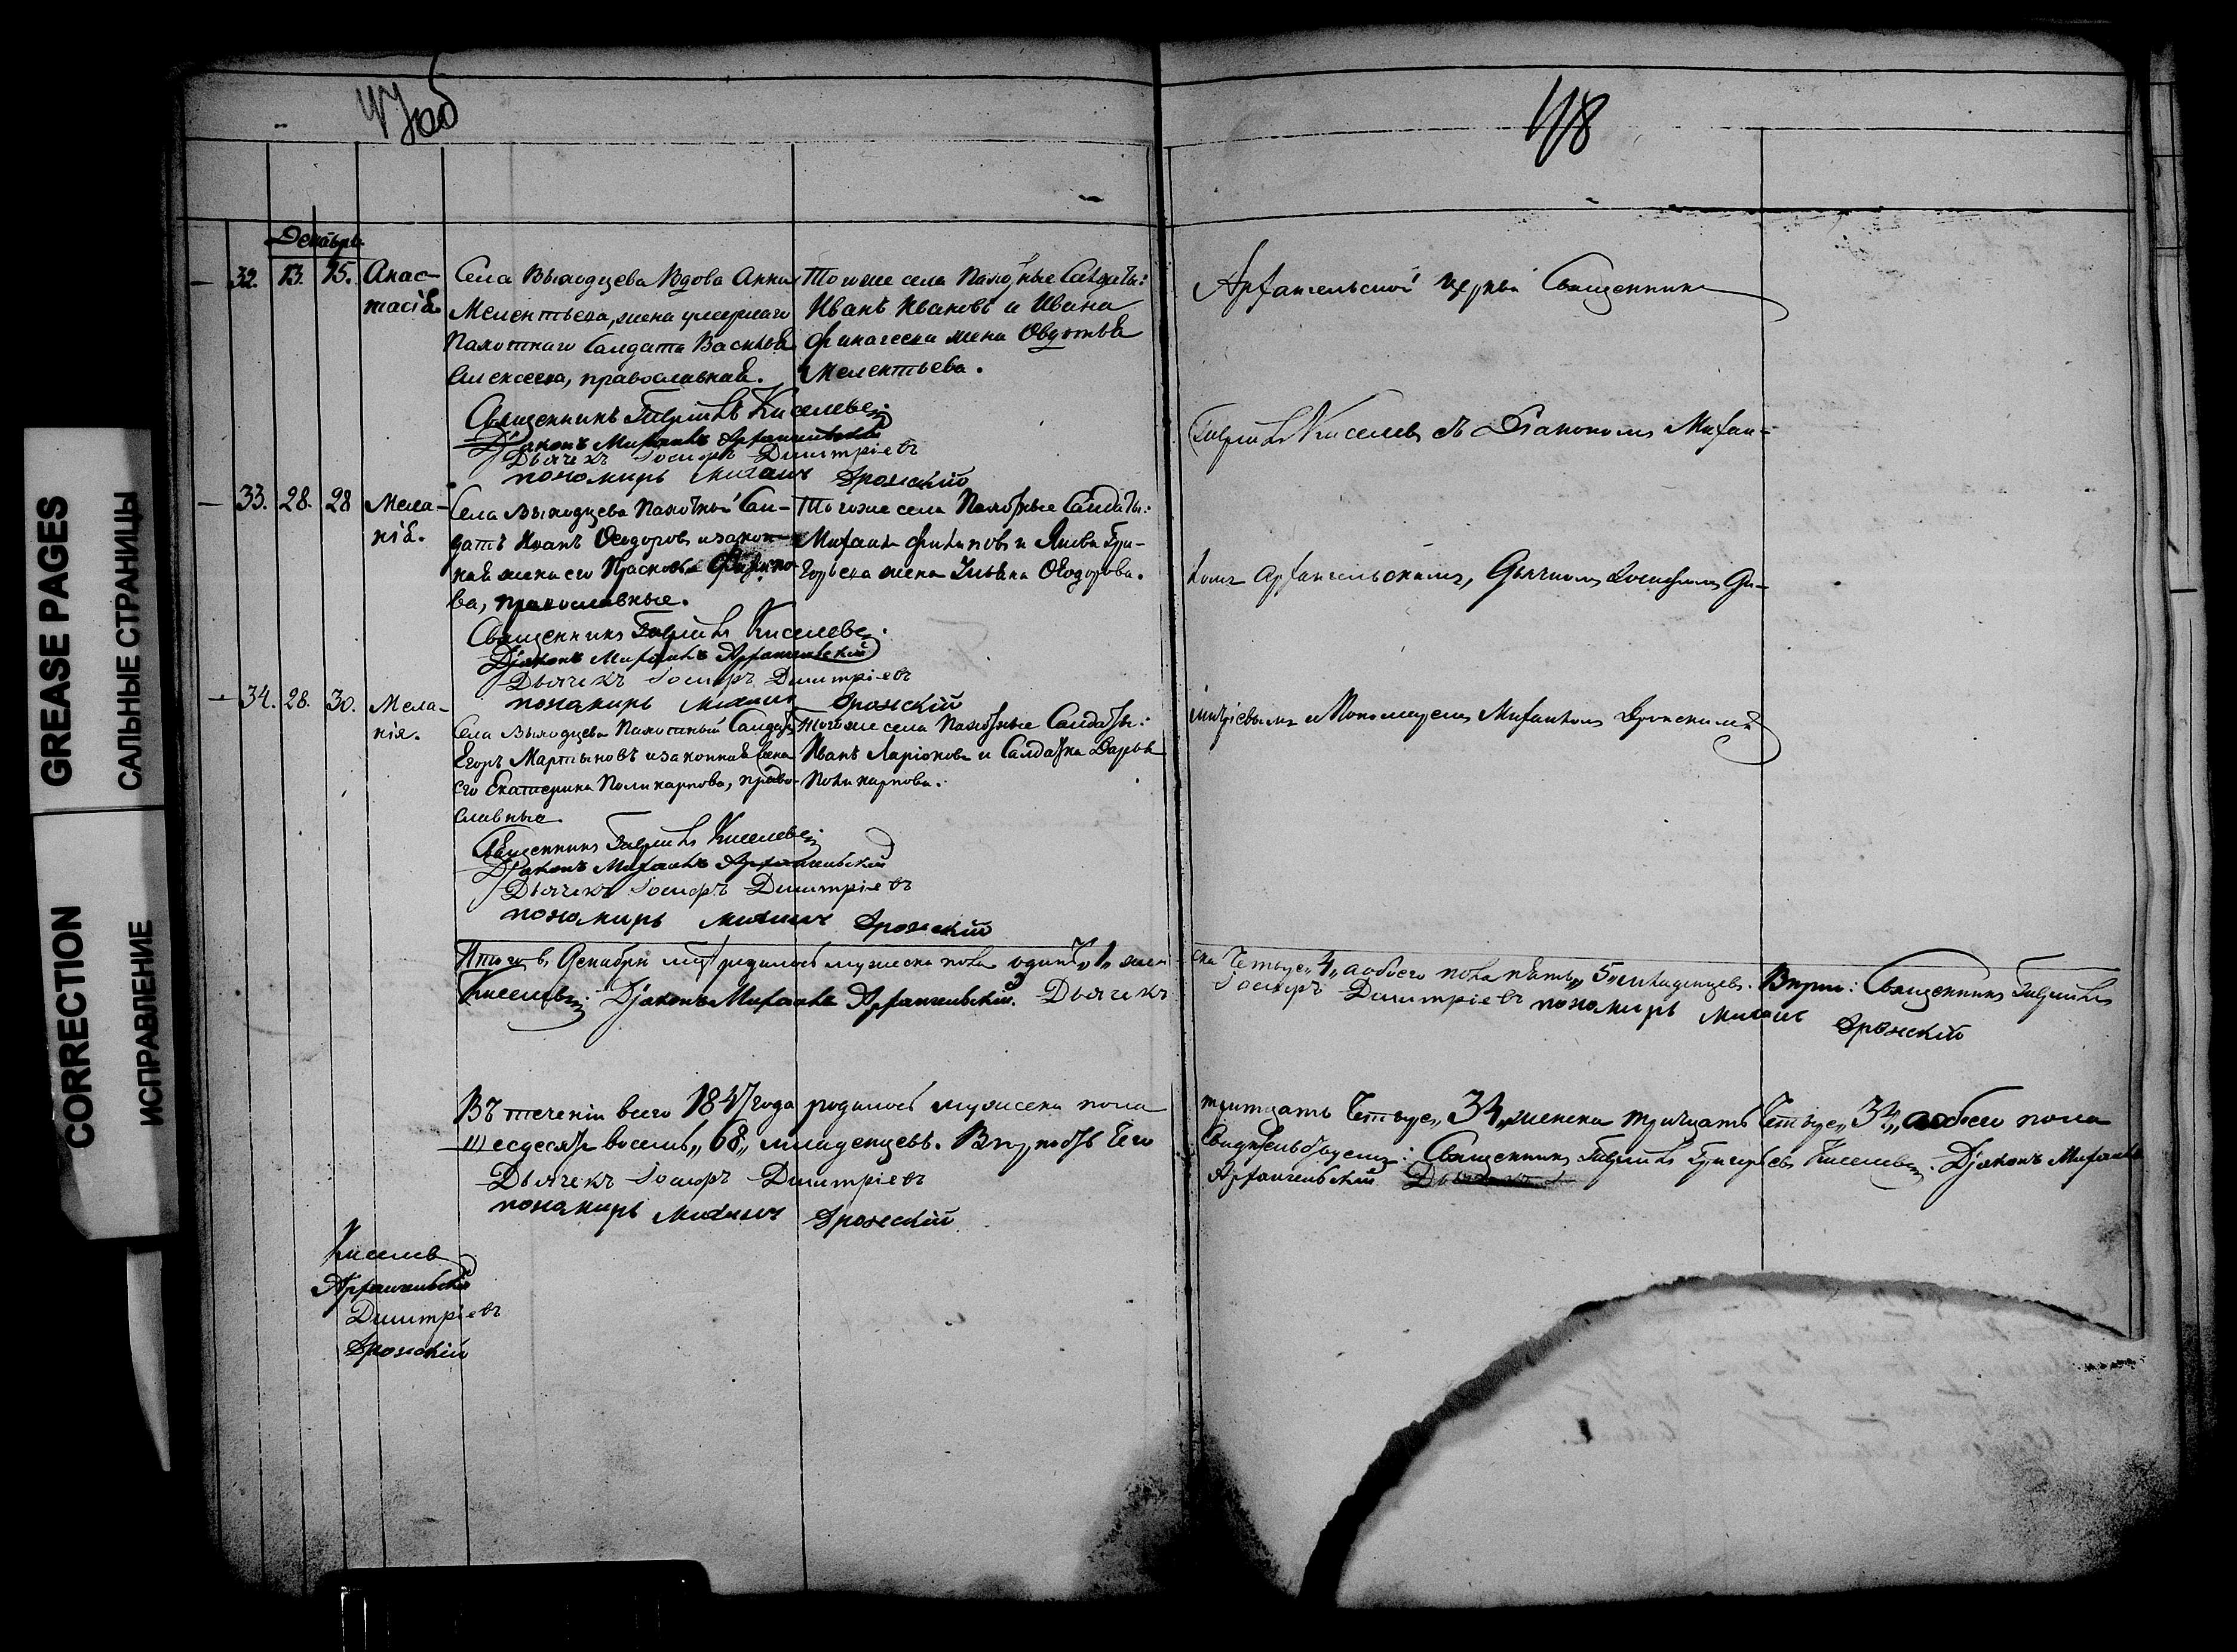 47об
48
Декабрь
32. 13. 15. Анас-
тасіѣ
Села Выходцева Вдова Анна
Мелентьева, жена умершаго
Пахотнаго Салдата Василья
Алексеева, православная.
Тогоже села Пахотные Салдаты:
Иванъ Ивановъ и Ивана
жена Овдотья
Мелентьева.
Архангельской церкви Священникъ
Священникъ Гавріилъ Киселевъ
Діаконъ Михаилъ Архангельскій
Дьячекъ Іосифъ Димитріевъ
пономарь Михаилъ Дронскій
Гавріилъ Киселевъ съ Діакономъ Михаи-
33. 28. 28 Мела-
нія.
Села Выходцева Пахотный Сал-
датъ Иванъ Ѳеодоровъ и закон-
ная жена его Прасковья
ва, православные.
Тогоже села Пахотные Салдаты:
Михаилъ Филиповъ и Якова Гри-
горьева жена Ульяна Ѳеодорова.
ломъ Архангельскимъ, Дьячкомъ Іосифомъ Ди-
Священникъ Гавріилъ Киселевъ.
Діаконъ Михаилъ Архангельскій
Дьячекъ Іосифъ Димитріевъ
пономарь Михаилъ Дронскій
34. 28. 30. Мела-
нія.
Села Выходцева Пахотный Салдатъ
Егоръ Мартыновъ и законная жена
его Екатерина Поликарпова, право-
славные
Тогоже села Пахотные Салдаты:
Иванъ Ларіоновъ и Салдатка Дарья
Поликарпова.
митріевымъ и Пономаремъ Михаиломъ Дронскимъ
Священникъ Гавріилъ Киселевъ
Діаконъ Михаилъ Архангельскій
Дьячекъ Іосифъ Димитріевъ
пономарь Михаилъ Дронскій
Итого въ Декабрѣ родилось мужеска пола одинъ „1„ жен-
ска Четыре „4„ а обоего пола пять „5„ младенцевъ. Вѣрно: Священникъ Гавріилъ
Киселевъ. Діаконъ Михаилъ Архангельскій. Дьячекъ
Іосифъ Димитріевъ пономарь Михаилъ Дронскій
Въ теченіи всего 1847 года родилось мужеска пола
тритцать Четыре „34„ женска тритцать Четыре „34„ а обоего пола
Шесдесятъ восемь „68„ младенцевъ. Въ вѣрности чего
Свидѣтельствуемъ: Священникъ Гавріилъ Григорьевъ Киселевъ. Діаконъ Михаилъ
Архангельскій
Дьячекъ Іосифъ Димитріевъ
пономарь Михаилъ Дронскій
Киселевъ
Архангельскій
Димитріевъ
Дронскій
GREASE PAGES
САЛЬНЫЕ СТРАНИЦЫ
CORRECTION
ИСПРАВЛЕНИЕ